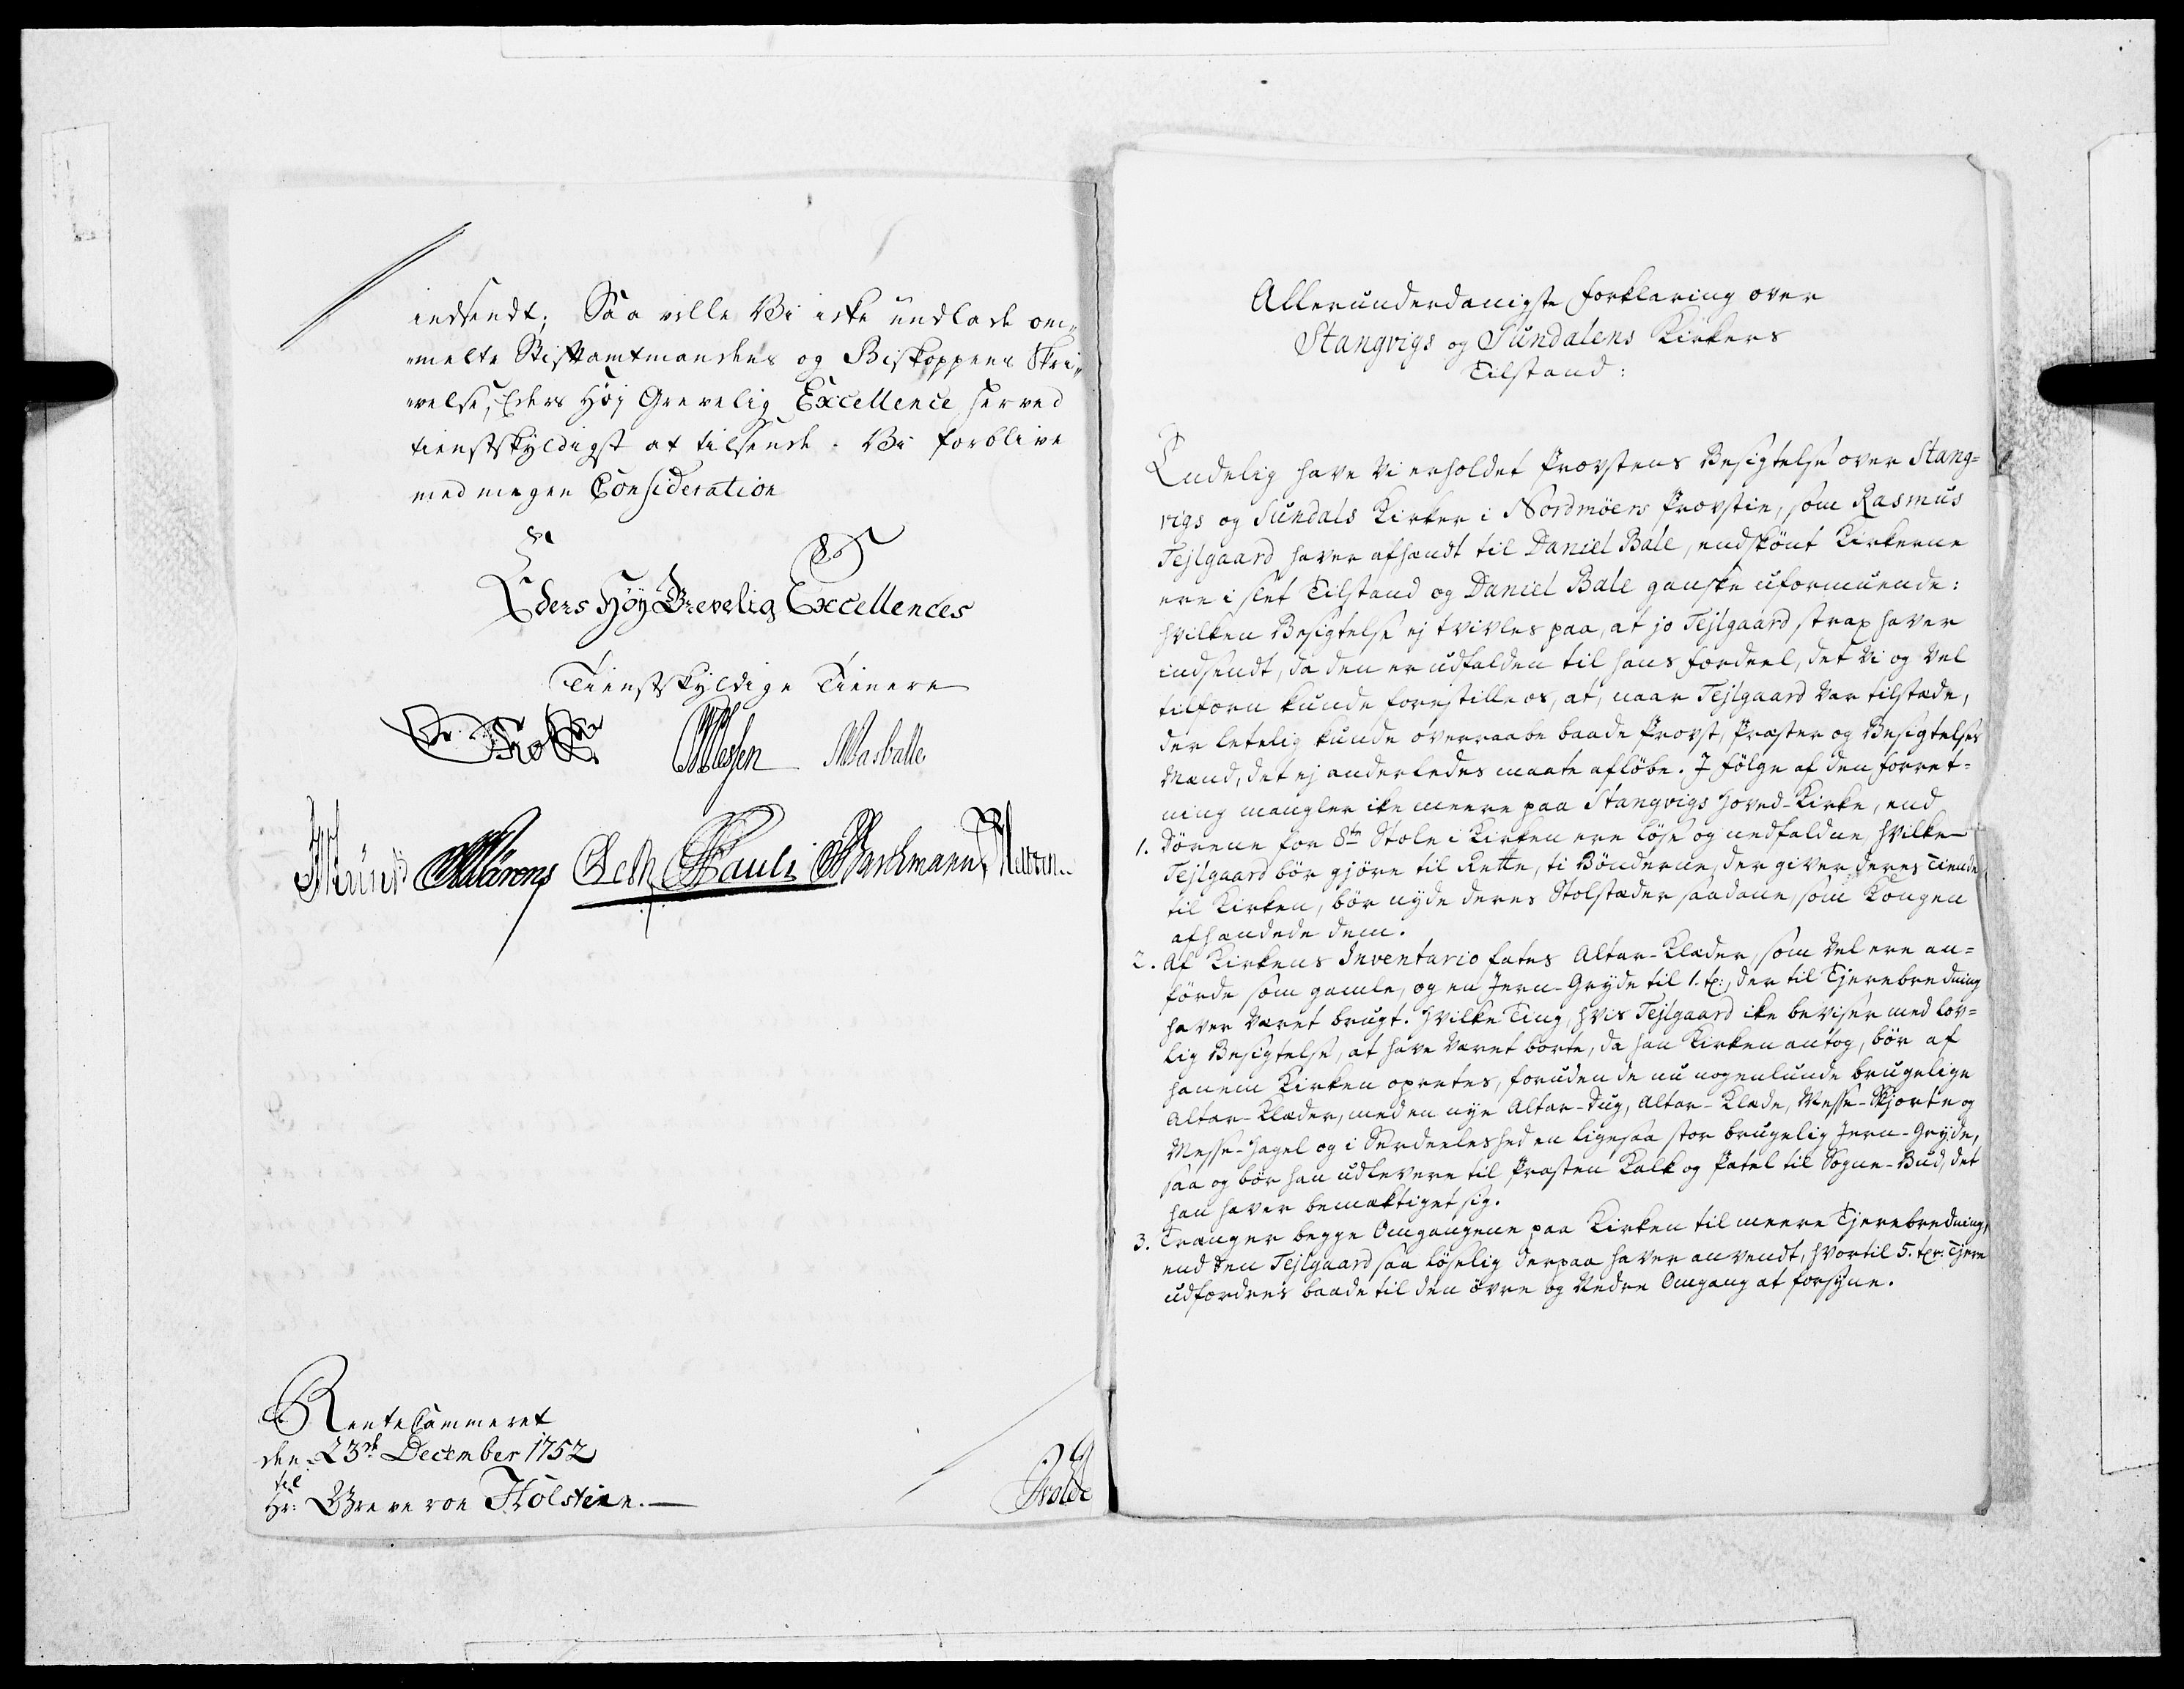 indsendt; Saa ville Vi icke undlade om„
„melte Stiftamtmandens og Biskoppens Skri„
„velse, Eders Høj Grevelig Excellence herved
tienstskyldigst at tilsende. Vi forblive
med megen Consideration
Eders Høy Grevelig Excellences
Tienstskyldige Tienere
Wasballe
Pauli
RenteCammeret
den 23de December 1752
til
Hr: Greve von Holstein.
Allerunderdanigste forklaring over
Stangvigs og Sundalens Kirkers
Tilstand:
Endelig have Vi erholdet Provstens Besigtelse over Stang=
vigs og Sundals Kirker i Nordmöers Provstie, som Rasmus
Tejlgaard haver afhændt til Daniel Bale, endskönt Kirkerne
ere i slet Tilstand og Daniel Bale ganske uformuende:
hvilken Besigtelse ej tvivles paa, at jo Tejlgaard strax haver
indsendt, da den er udfalden til hans fordeel, det Vi og Vel
tilforn kunde forestille os, at, naar Tejlgaard Var tilstæde,
der letelig kunde overraabe baade Provst, Præster og Besigtelses
Mænd, det ej anderledes maate aflöbe. I fölge af den forret=
ning mangler ike meere paa Stangvigs Hoved-Kirke, end
1. Dörene for 8te Stole i Kirken ere löse og nedfaldne, hvilke
Tejlgaard bör gjöre til Rette, ti Bönderne, der giver deres Tiende
til Kirken, bör nyde deres Stolstæder saadane, som Kongen
afhændede dem.
2. Af Kirkens Inventario fates Altar-Klæder, som Vel ere an=
förde som gamle, og en Jern-Gryde til 1. tø:, der til Tjerebredning
haver Været brugt. Hvilke Ting, hvis Tejlgaard ike beviser med lov=
lig Besigtelse, at have Været borte, da han Kirken antog, bör af
hanem Kirken opretes, foruden de nu nogenlunde brugelige
Altar-Klæder, med en nye Altar-Dug, Altar-Klæde, Messe-Skjorte og
Messe-Hagel og i Særdeeleshed en ligesaa stor brugelig Jern-Gryde,
saa og bör han udlevere til Præsten Kalk og Patel til Sogne-Bud, det
han haver bemæktiget sig.
3. Trænger begge Omgangene paa Kirken til meere Tjerebredning,
end den Tejlgaard saa löselig derpaa haver anvendt, hvortil 5. tør: Tjere
udfordres baade til den övre og Nedre Omgang at forsyne.